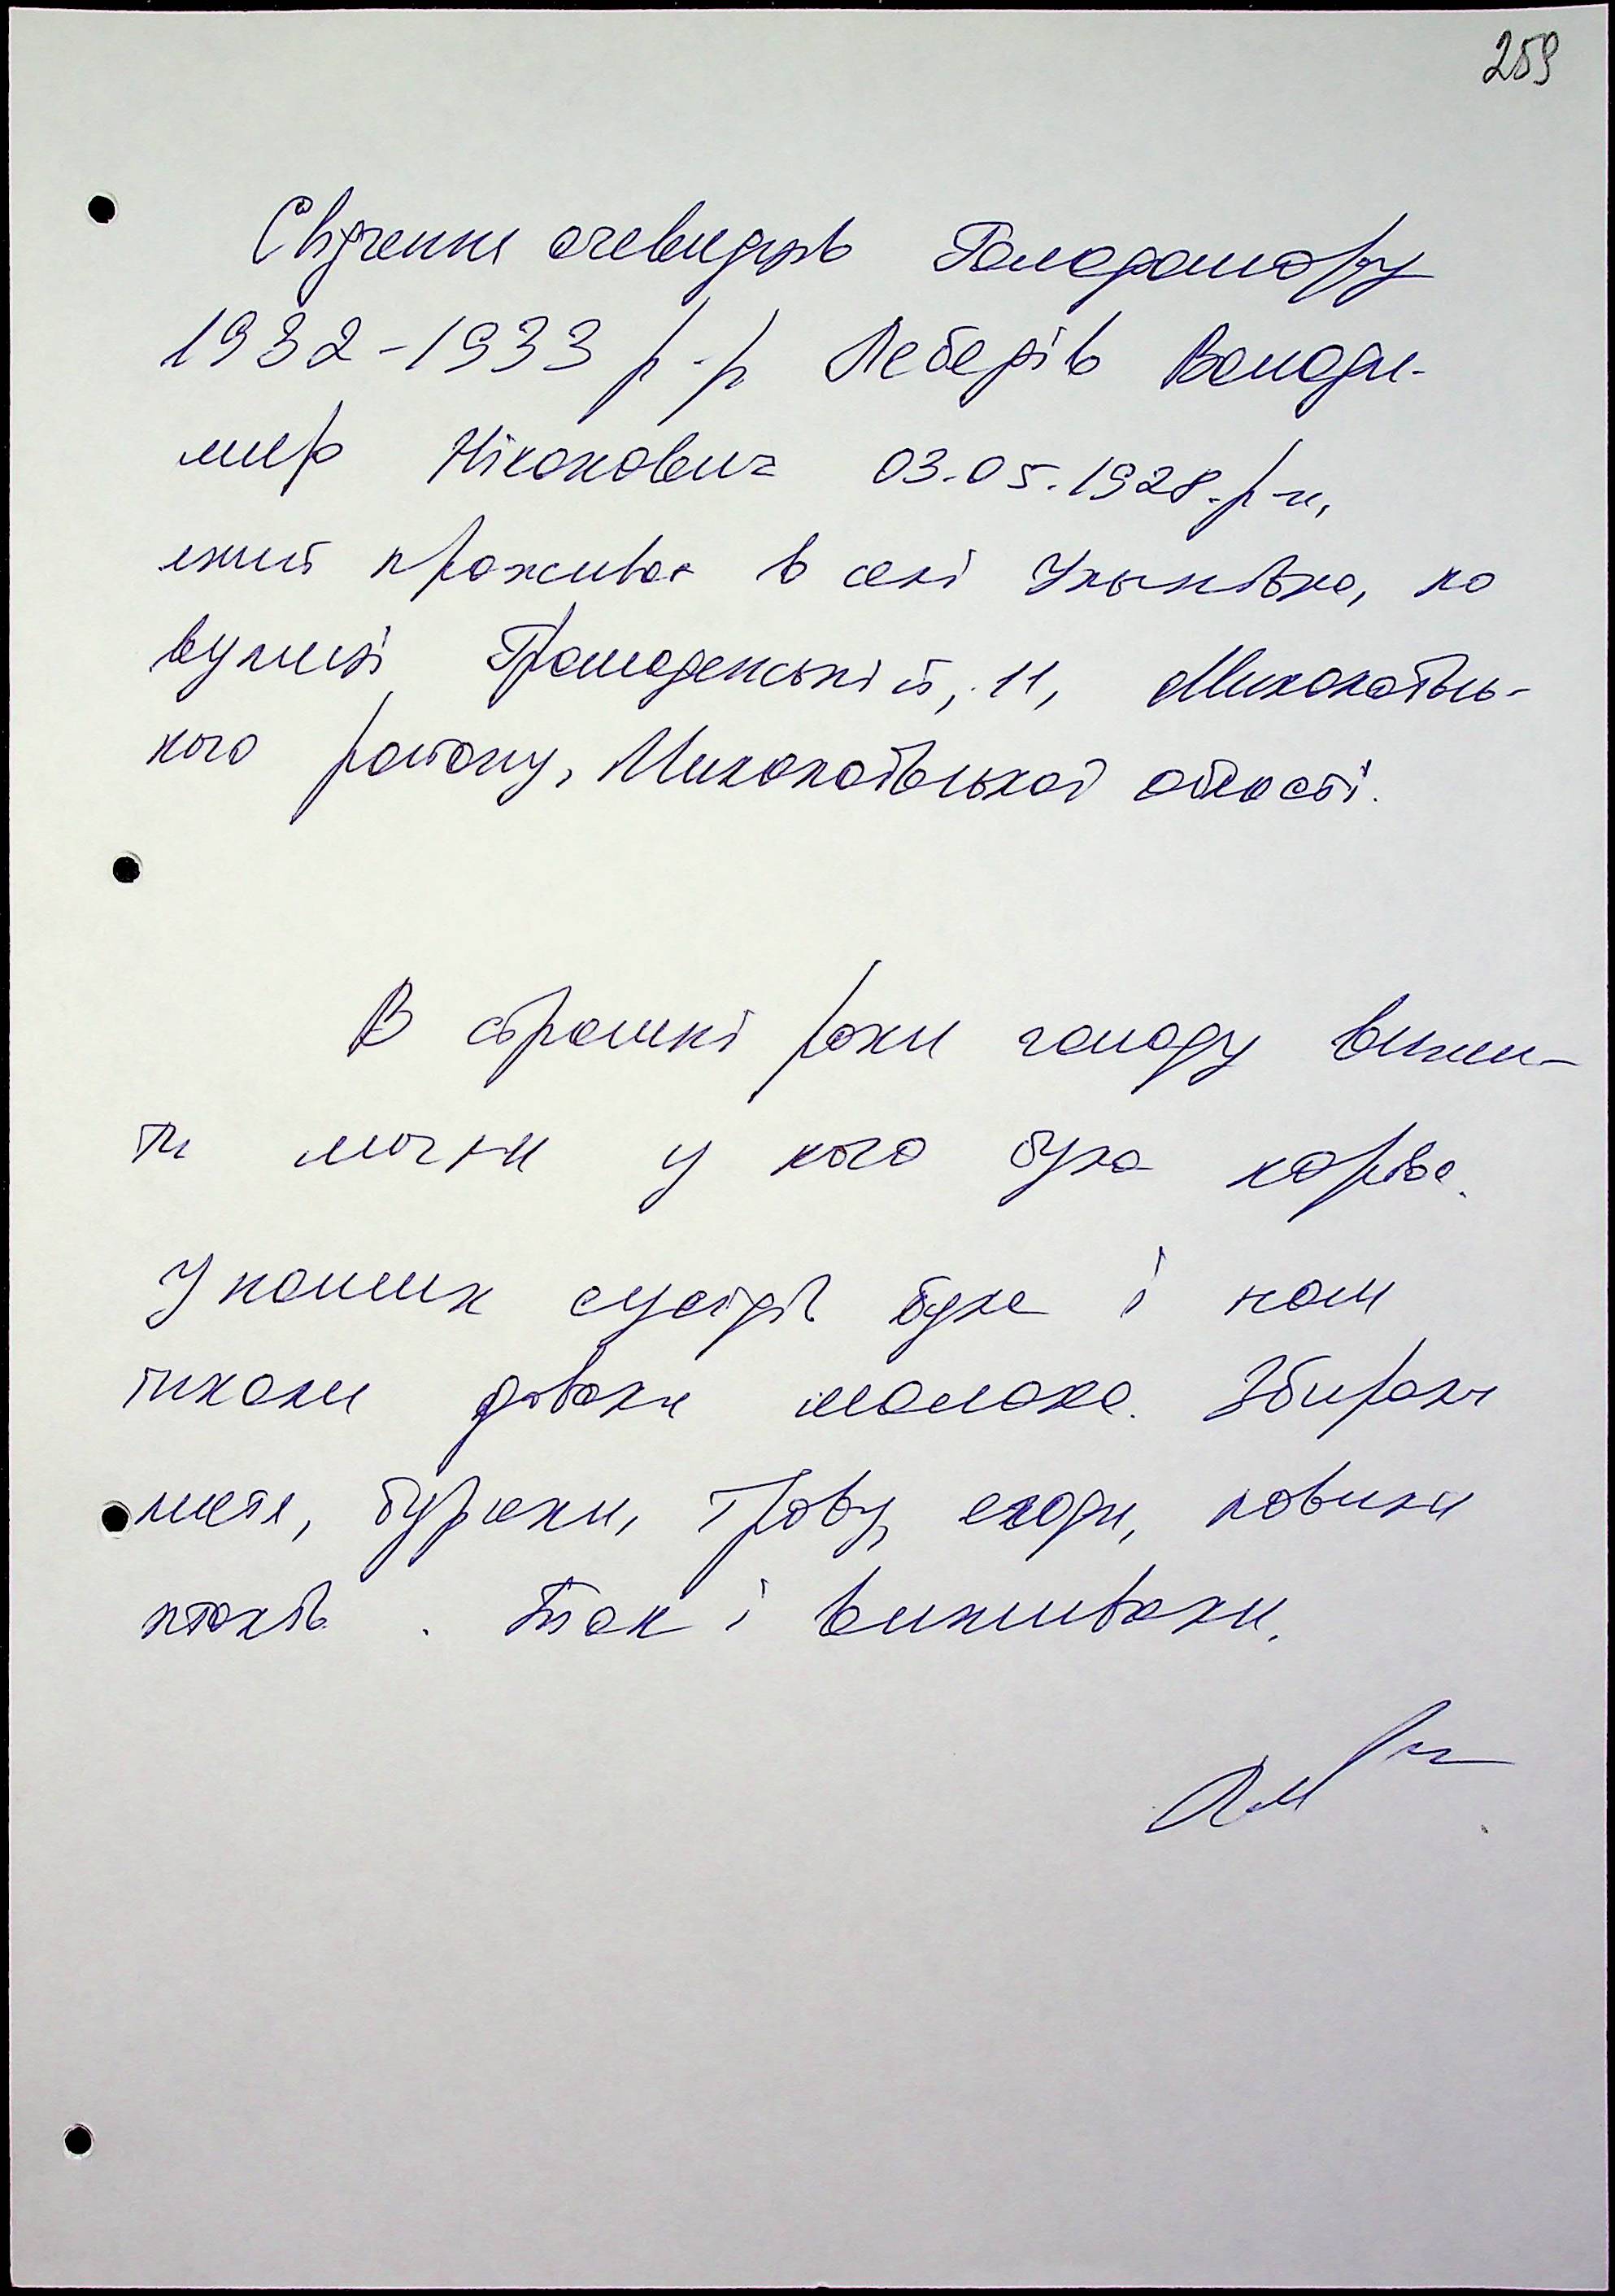 259
Свідчення очевидців Голодомору
1932-1933 р-р Лебедів Володи-
мир Ніконович 03.05.1928 р-н,
який проживає в селі Ульянівка, по
вулиці Громадянській, 11, Миколаївсь-
кого району, Миколаївської області.
В страшні роки голоду вижи-
ти могли у кого була корова.
У наших сусідів була і нам
давали молоко. Збирали
листя, буряки, траву, ловили
птахів. Так і виживали.